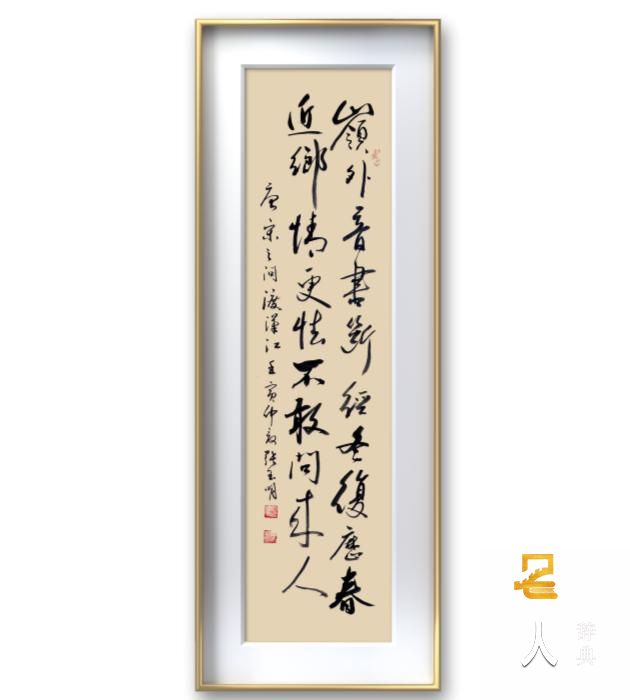 嶺外音書斷經冬復歷春
近鄉情更怯不敢問來人
唐宋之问渡漢江壬寅仲秋張玉明
名人
辞典